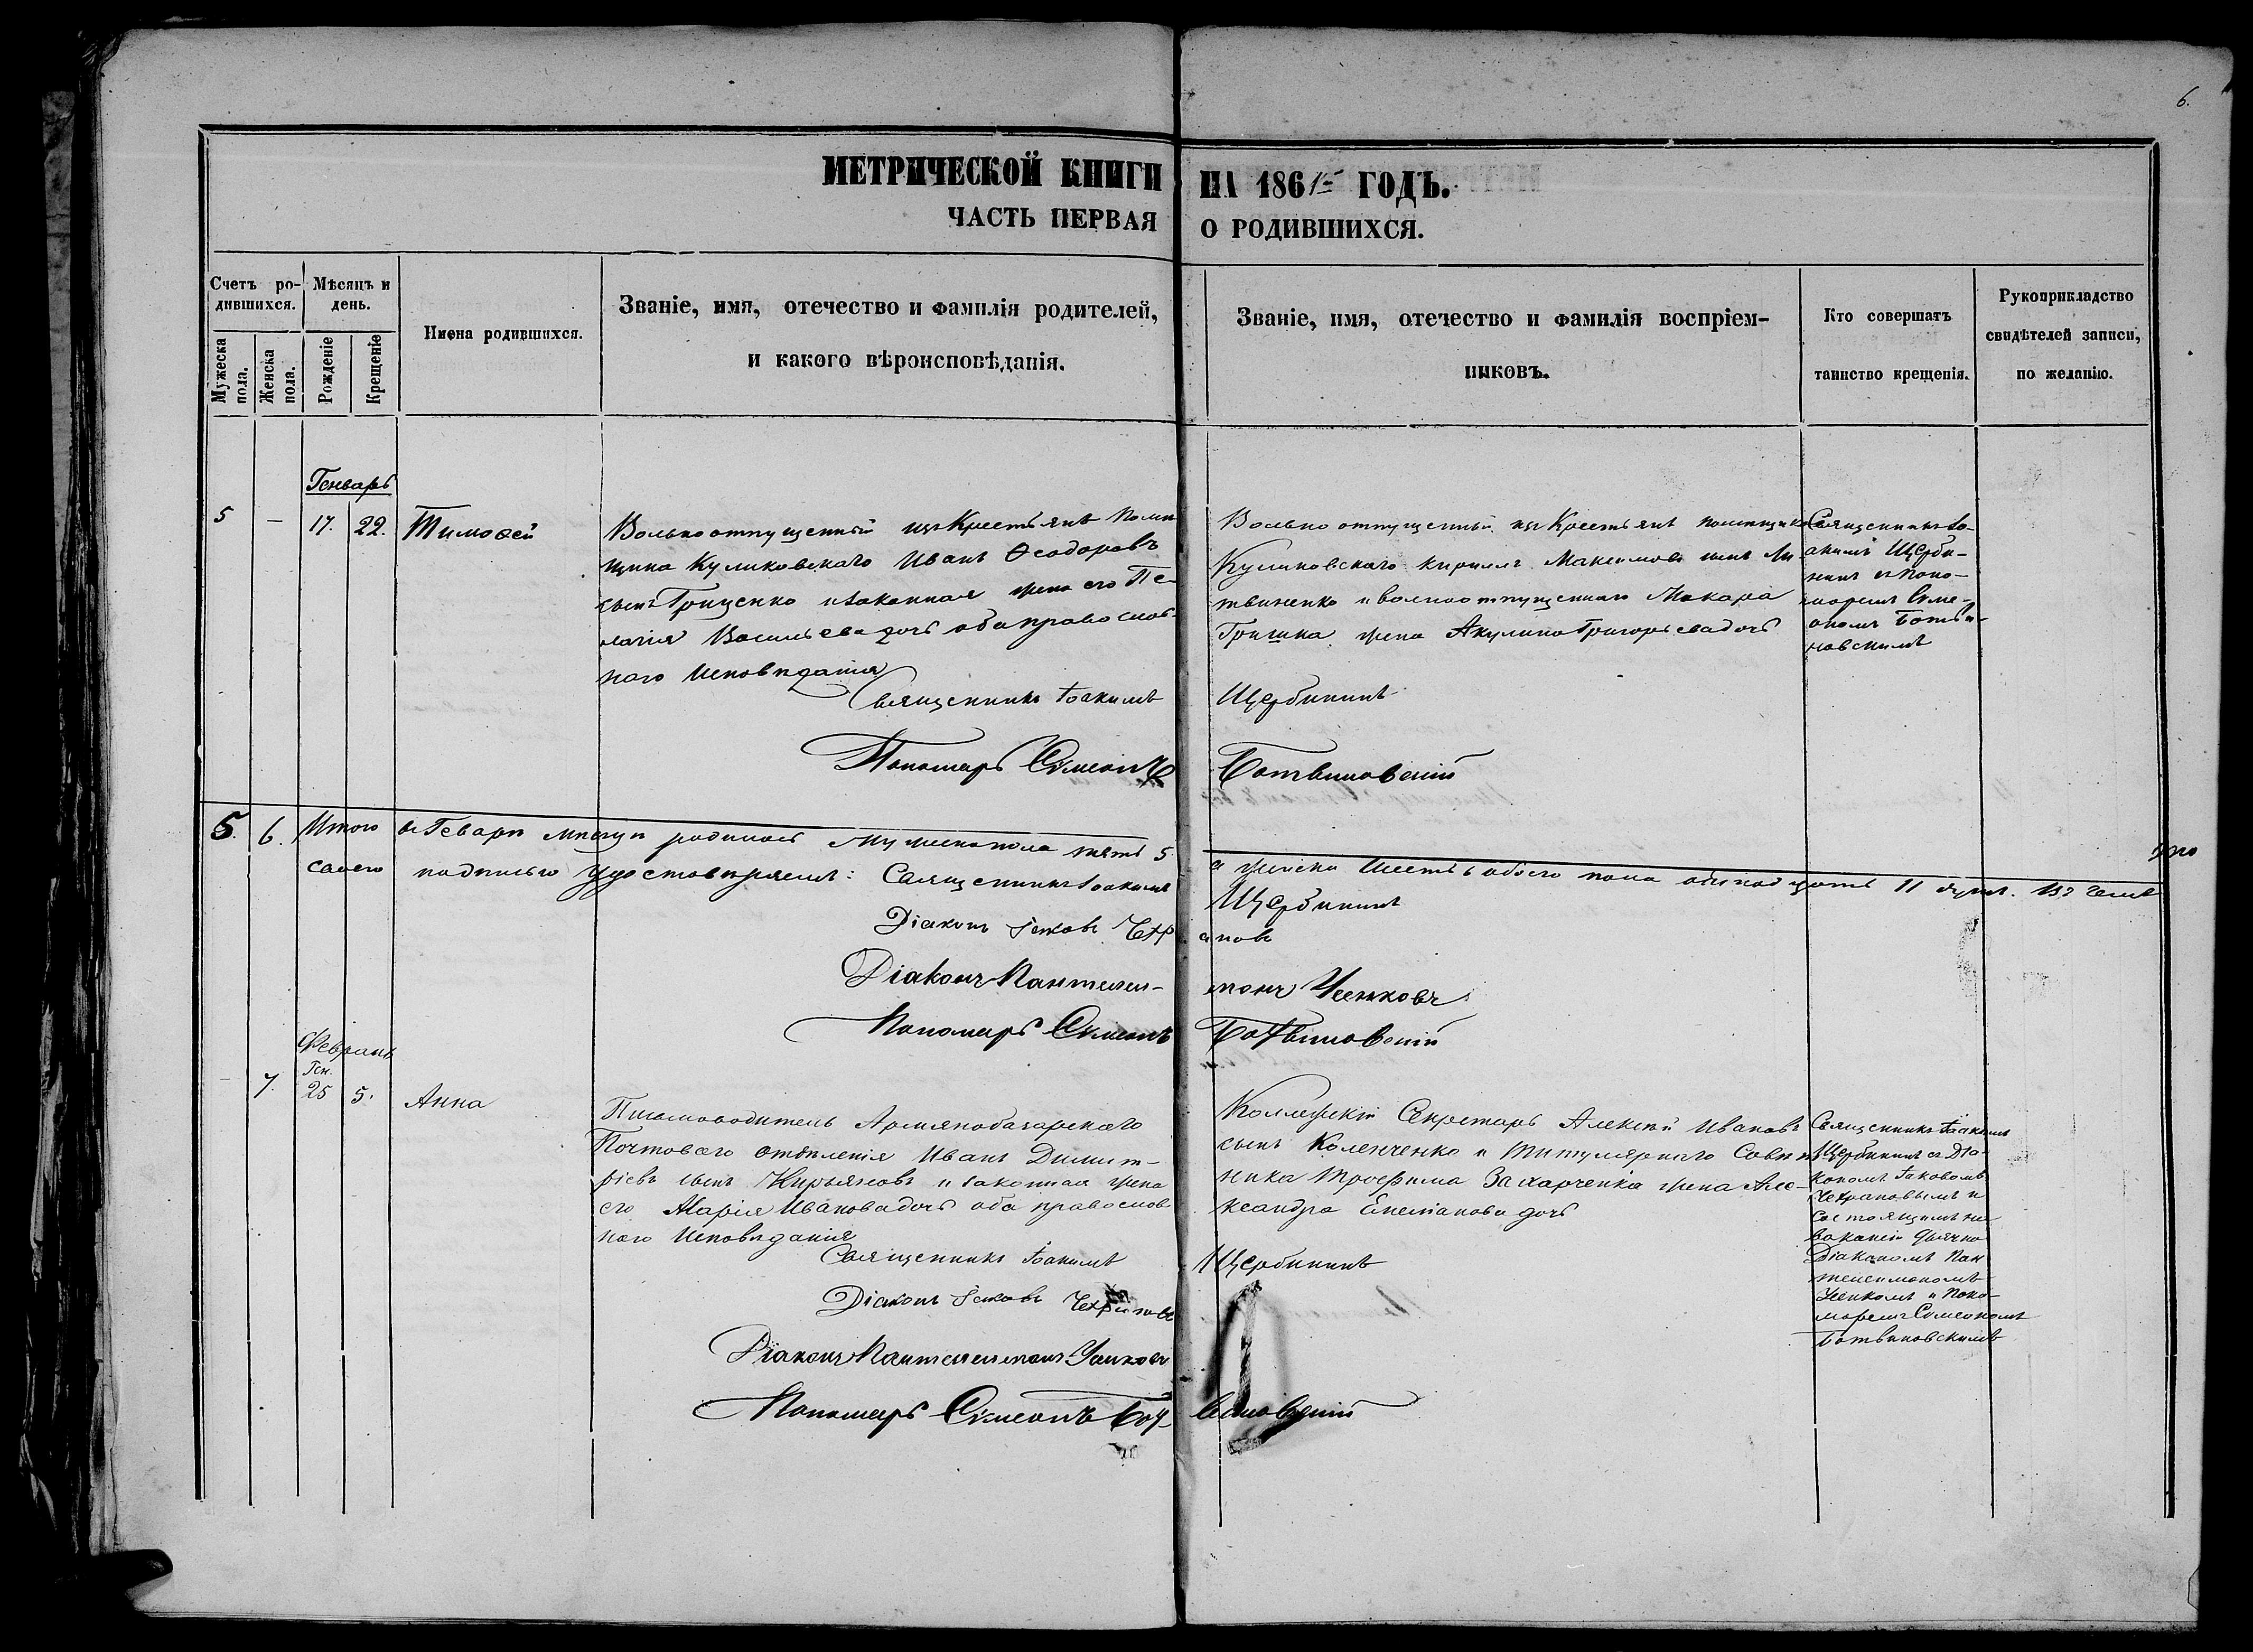 6.
МЕТРИЧЕСКОЙ КНИГИ НА 1861 ГОДЪ.
ЧАСТЬ ПЕРВАЯ О РОДИВШИХСЯ.
Счетъ ро-
дившихся.
Мужеска пола.
Женска пола.
Мѣсяцъ и
день.
Рожденіе
Крещеніе
Имена родившихся.
Званіе, имя, отечество и фамилія родителей,
и какого вѣроисповѣданія.
Званіе, имя, отечество и фамилія воспріем-
никовъ.
Кто совершатъ
таинство крещенія.
Рукоприкладство
свидѣтелей записи,
по желанію.
Генварь
5 – 17. 22. Тимоѳей
Вольноотпущенный изъ Крестьянъ Поми
щика Куликовскаго Иванъ Ѳеодоровъ
сынъ Гриценко и законная жена его Пе-
лагія Васильева дочь оба православ-
наго Исповѣданія
Вольноотпущенный изъ Крестьянъ помещика
Куликовскаго Кириллъ Максимовъ сынъ Ли-
твиненко и вольноотпущеннаго Макара
Гришка жена Акулина Григорьева дочь
Священникъ Іо-
акимъ Щерби-
нинъ съ Поно-
маремъ Симе-
ономъ Ботви-
новскимъ
Священникъ Іоакимъ Щербининъ
Пономарь Симеонъ Ботвиновскій
5. 6. Итого въ Генварѣ мѣсяцѣ родилось Мужеска пола пять 5 а женска шесть 6 обоего пола одинадцать 11 душъ. Въ чемъ
своею подписью удостовѣряемъ: Священникъ Іоакимъ Щербининъ
Діаконъ Іаковъ Чехрановъ
Діаконъ Пантелеимонъ
Пономарь Симеонъ Ботвиновскій
Февраль
Ген.
– 7. 25 5. Анна
Письмоводитель Армянобазарскаго
Почтоваго отдѣленія Иванъ Димит-
ріевъ сынъ Кирьяковъ и законная жена
его Марія Иванова дочь оба православ
наго Исповѣданія
Коллежскій Секретарь Алексѣй Ивановъ
сынъ Коленченко и Титулярнаго Совѣт
ника Трофима Захарченка жена Але-
ксандра Емельянова дочь
Священникъ Іоакимъ
Щербининъ съ Діа-
кономъ Іаковомъ
Чехрановымъ и
состоящимъ на
ваканіи дьячка
Діакономъ Пан
телеимономъ
и Поно-
маремъ Симеономъ
Ботвиновскимъ
Священникъ Іоакимъ Щербининъ
Діаконъ Іаковъ Чехрановъ
Діаконъ Пантелеимонъ
Пономарь Симеонъ Ботвиновскій